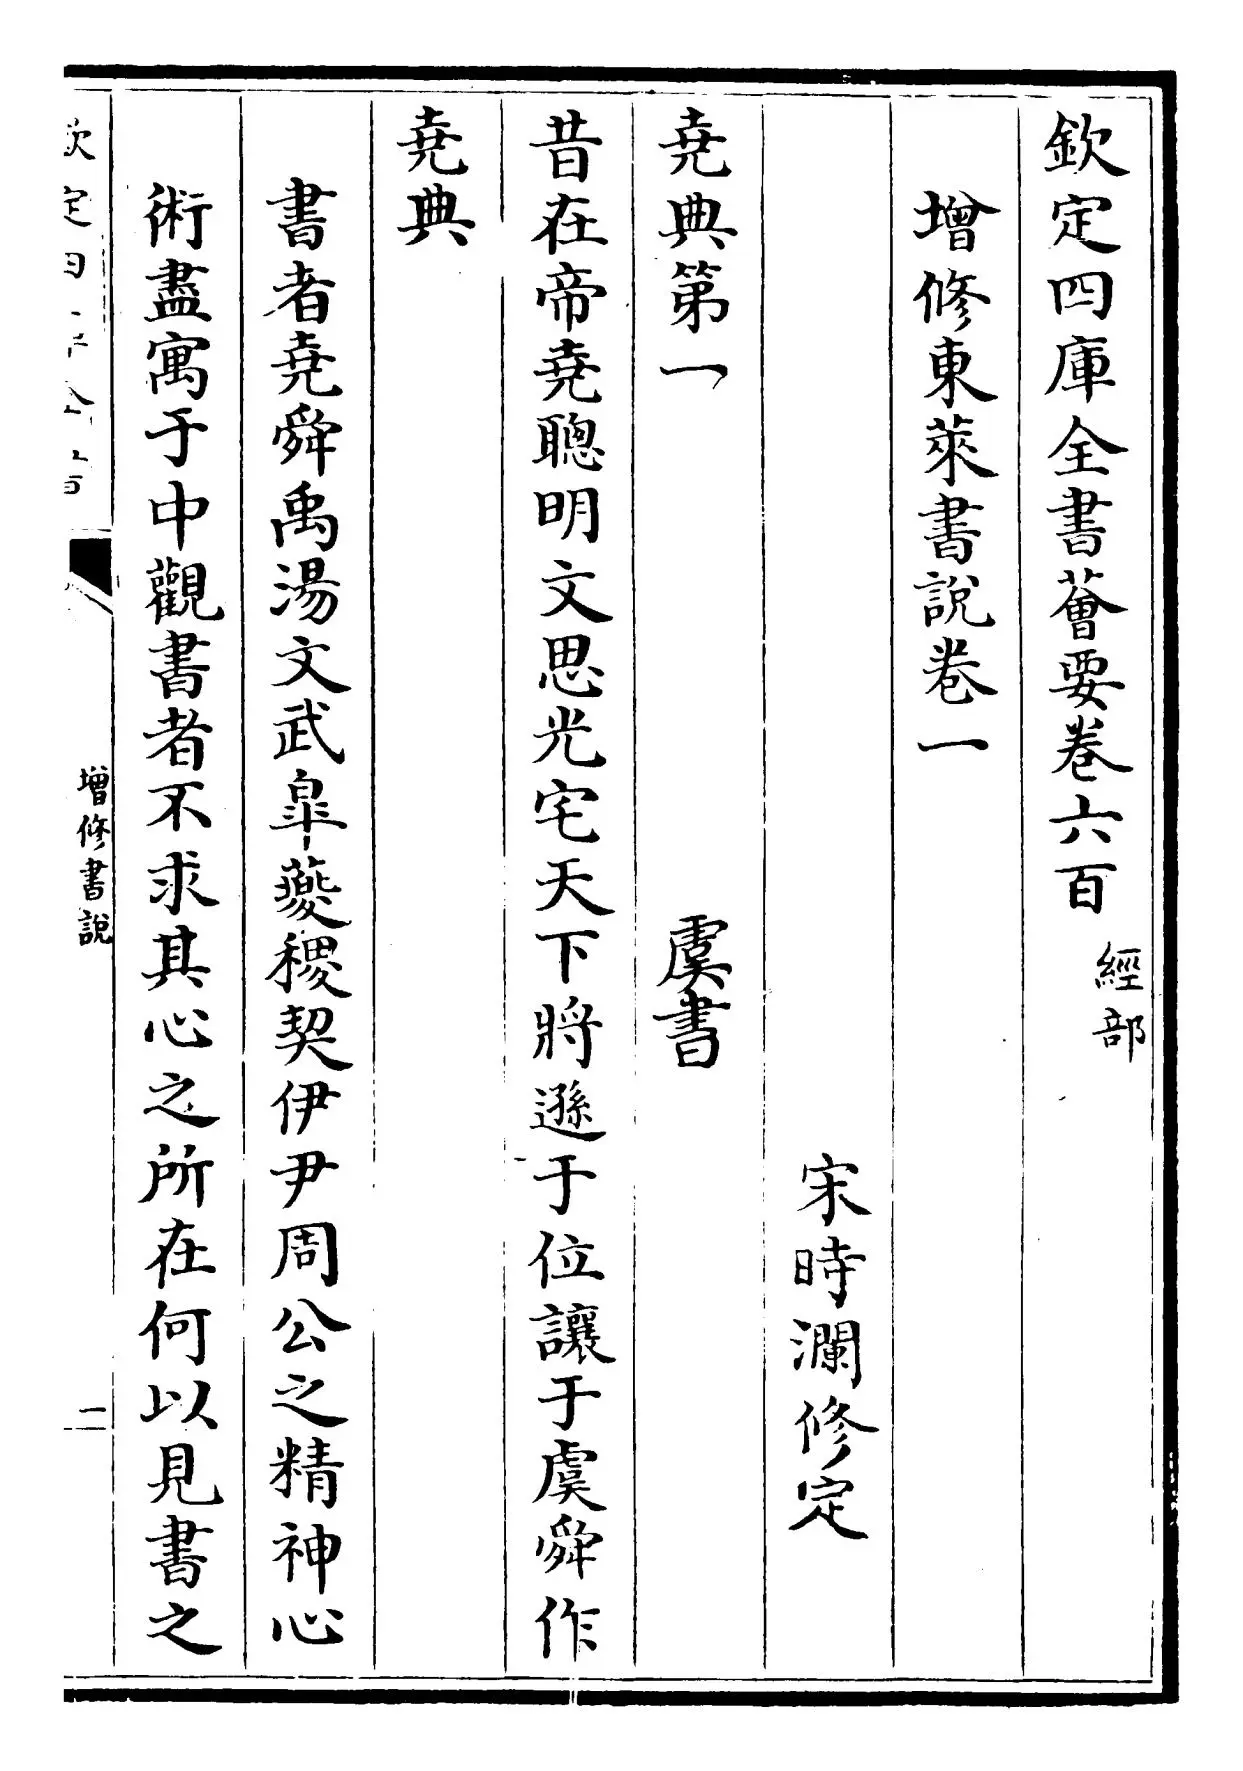 欽定四庫全書薈要卷六百 經部
增修東萊書說卷一
宋時瀾修定
堯典第一 虞書
昔在帝堯聰明文思光宅天下將遜于位讓于虞舜作
堯典
書者堯舜禹湯文武臯夔稷契伊尹周公之精神心
術盡寓于中觀書者不求其心之所在何以見書之
增修書說
一